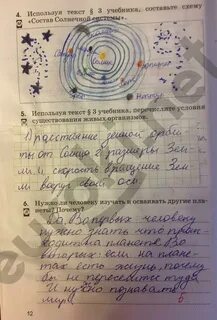 4. Используя текст § 3 учебника, составьте схему
«Состав Солнечной системы».
Солнце
5. Используя текст § 3 учебника, перечислите условия
существования живых организмов.
1) расстояние земной орби-
ты от Солнца 2) размеры Зем-
ли и скорость вращение Зем-
ли вокруг своей оси.
6. Нужно ли человеку изучать и осваивать другие пла-
неты? Почему?
Да. Во первых человеку
нужно знать что проис-
ходит на планете. Во
вторых если на плане-
тах есть жизнь, почему
бы не переселится туда.
И нужно познавать
мир.
5
12